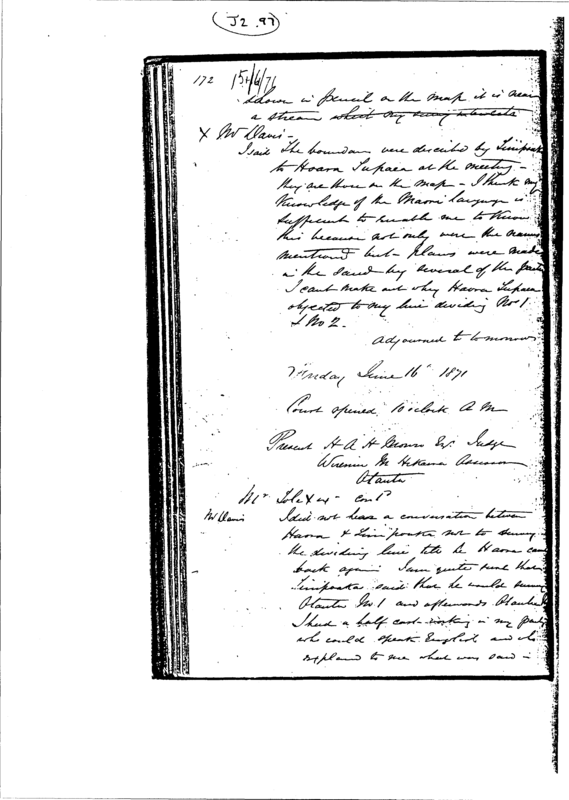 J2.97
172 15/6/71
shown in pencil on the map it is near
a stream
X Mr Davis -
I said The boundary were described by
to Hoera Tupaea at the meeting -
they are those on the map - I think my
Knowledge of the Maori Language is
sufficient to enable me to Know
this because not only were the names
mentioned but plans were made
in the sand by several of the party
I cant make out why Hoera Tupaea
objected to my line dividing No 1
& No 2.
adjourned to tomorrow
Friday June 16 1871
Court opened 10 oclock A M
Present H A H Monro Esq. Judge
Assessor
Otanta
Mr X ex - cont
Mr Davis I did not hear a conversation between
Hoera & not to survey
the dividing line Hoera came
back again I am quite sure that
said that he would survey
No 1 and afterwards
I had a half cast working in my party
who could speak English and who
explained to me what was said -